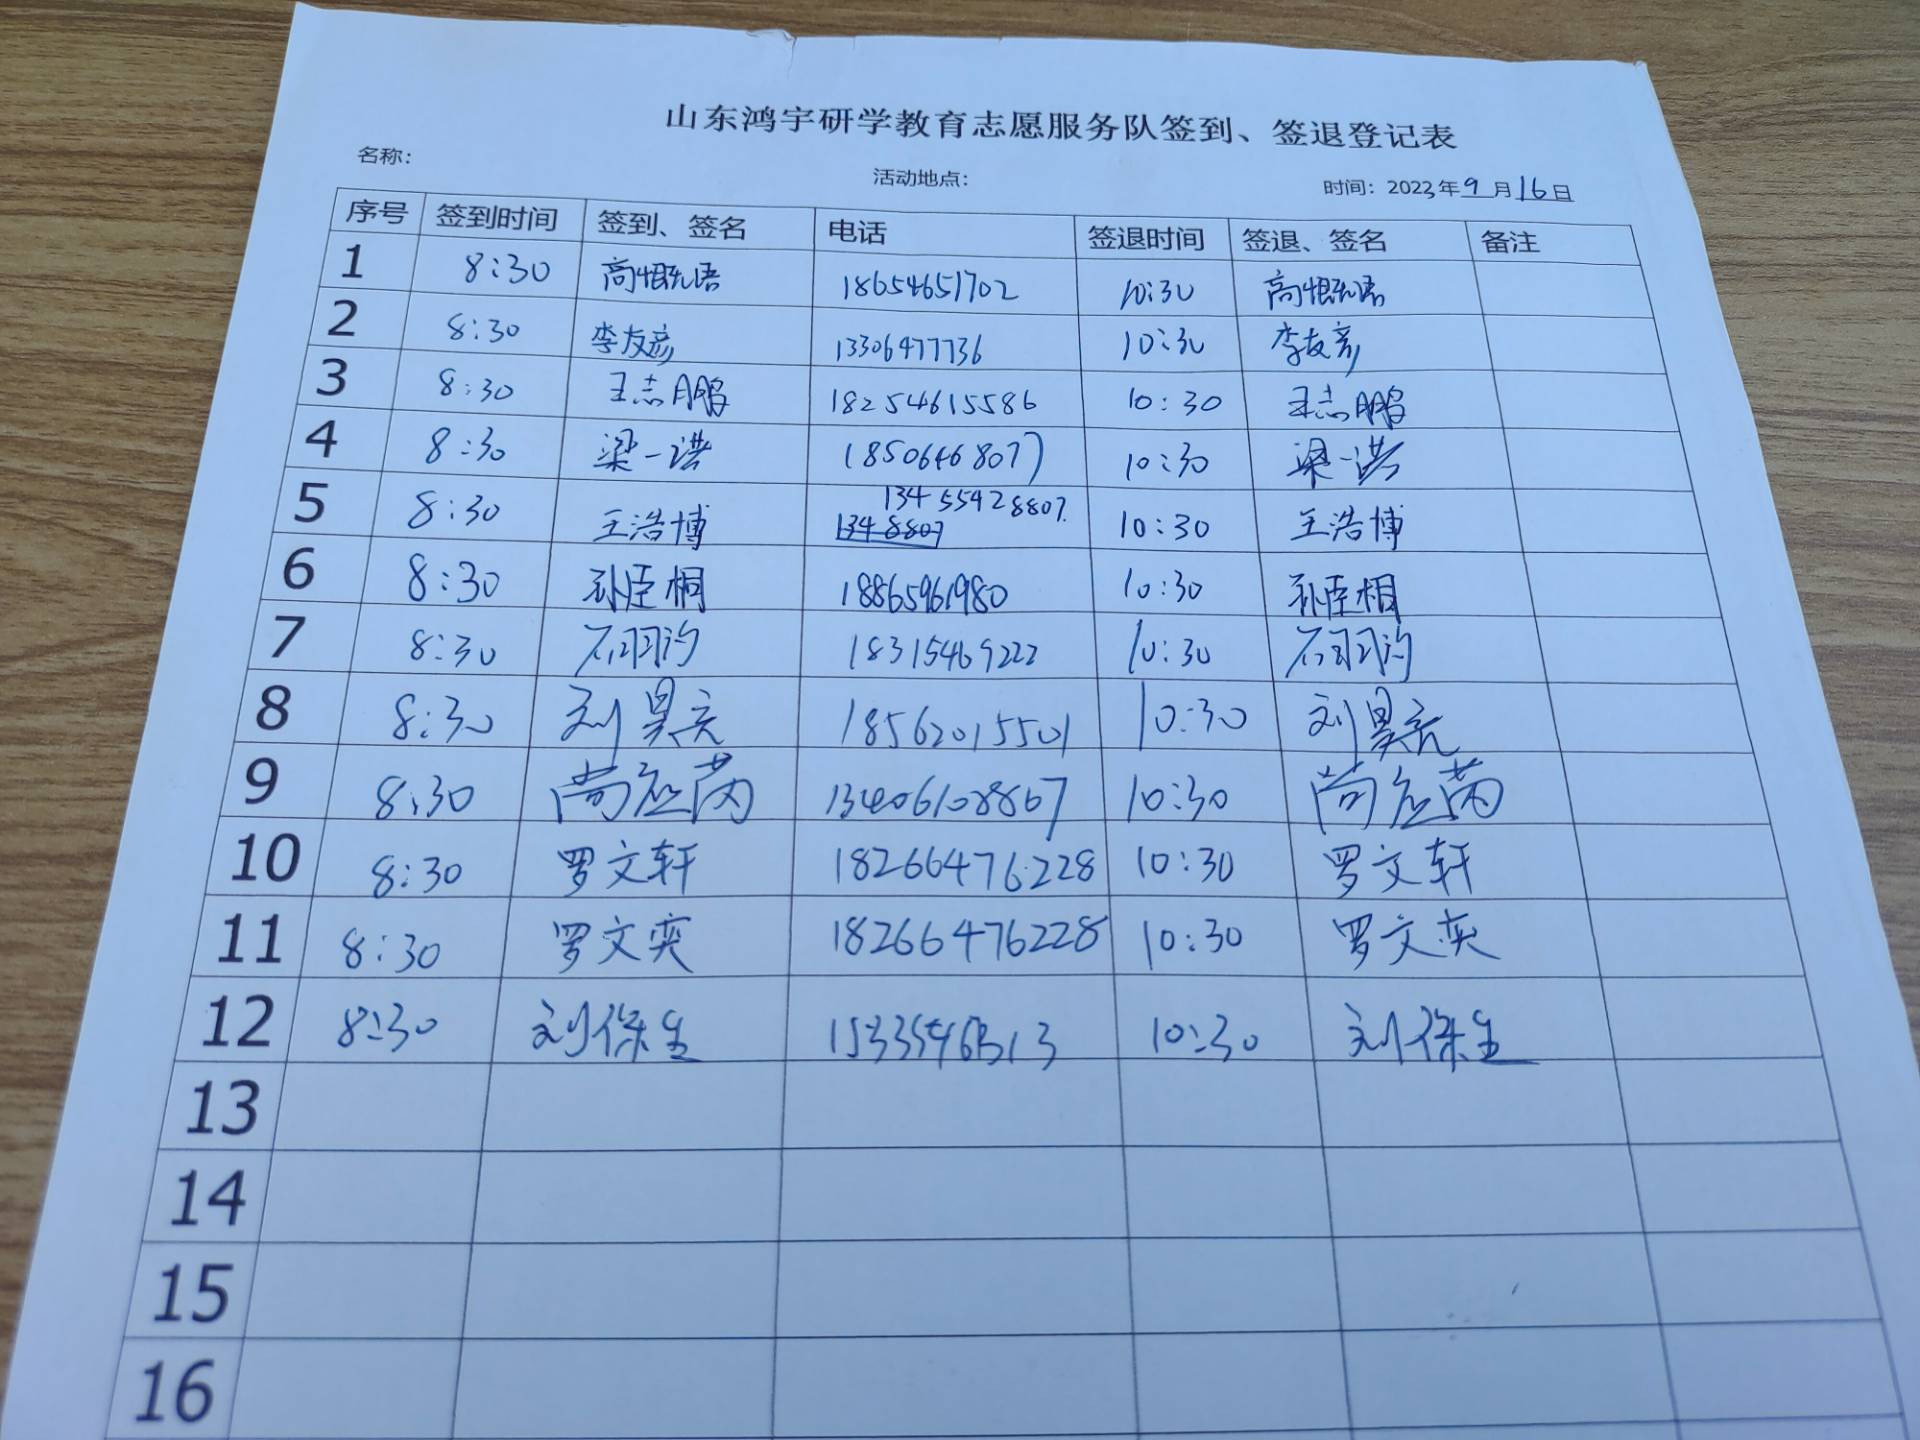 山东鸿宇研学教育志愿服务队签到、签退登记表
名称：
活动地点：
时间：2023年9月16日
序号 签到时间 签到、签名 电话 签退时间 签退、签名 备注
1 8:30 18654651702 10:30
2 8:30 李友彦 13306477736 10:30 李友彦
3 8:30 王志鹏 18254615586 10:30 王志鹏
4 8:30 梁一洪 18506468077 10:30 梁一洪
5 8:30 王浩博 13455428807 10:30 王浩博
6 8:30 孙臣桐 18865961980 10:30 孙臣桐
7 8:30 石羽汐 18315469222 10:30 石羽汐
8 8:30 刘昊亮 18562015501 10:30 刘昊亮
9 8:30 13406108867 10:30
10 8:30 罗文轩 18266476228 10:30 罗文轩
11 8:30 罗文奕 18266476228 10:30 罗文奕
12 8:30 刘保生 10:30 刘保生
13
14
15
16